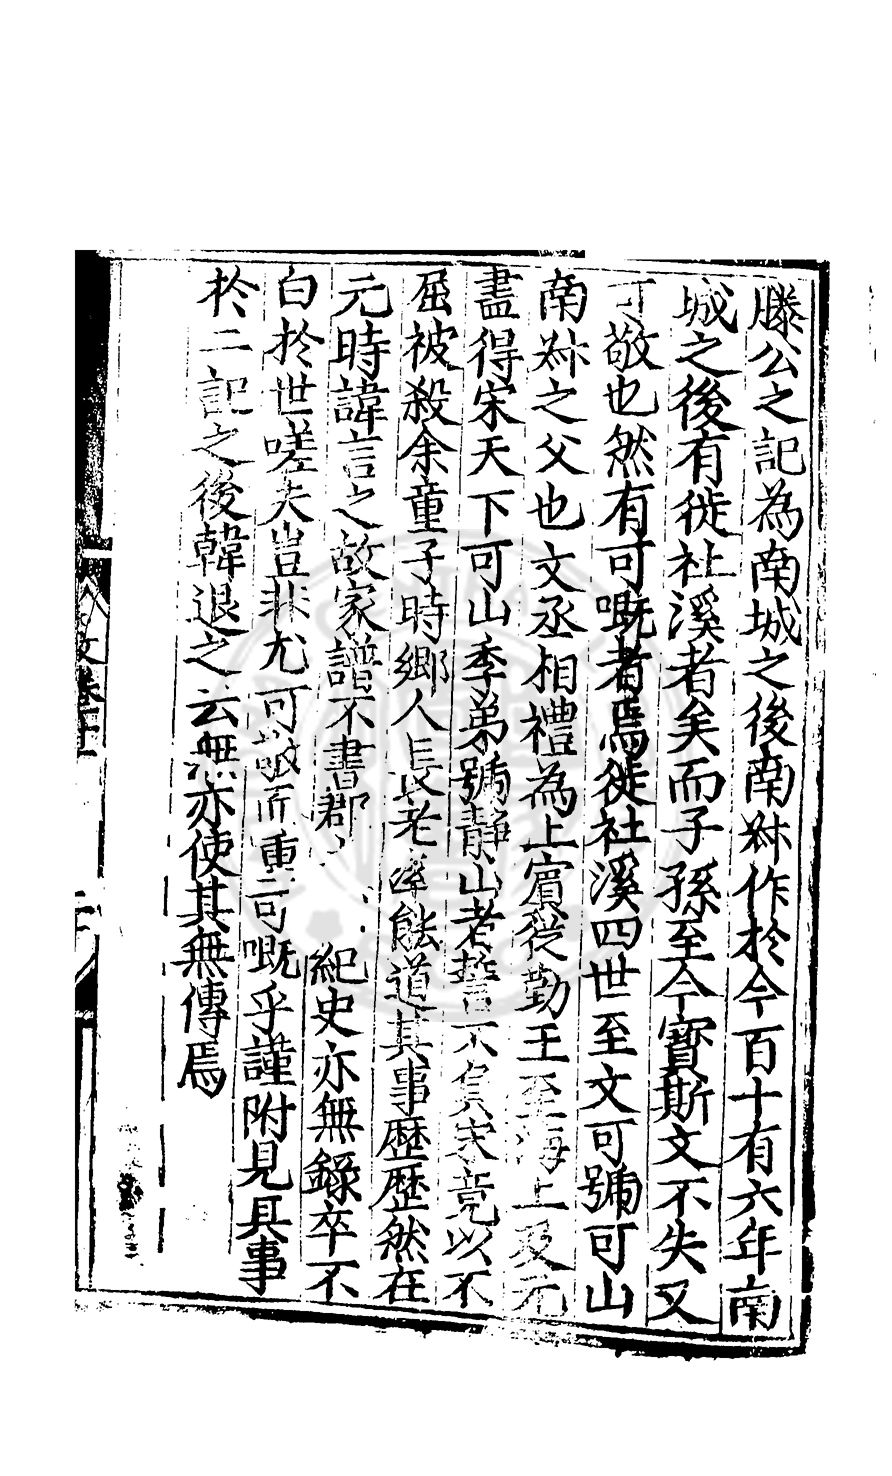 滕公之記為南城之後南𥙿作於今百十有六年南
城之後有徙社溪者矣而子孫至今寳斯文不失又
可敬也然有可嘅者焉徙社溪四世至文可號可山
南𥙿之父也文丞相禮為上賔從勤王至海上及元
盡得宋天下可山季弟號静山者誓不負宋竟以不
屈被殺余童子時鄉人長老率能道其事歷歷然在
元時諱言之故家譜不書郡 紀史亦無錄卒不
白於世嗟夫豈非尤可敬而重可嘅乎謹附見其事
於二記之後韓退之云無亦使其無傳焉